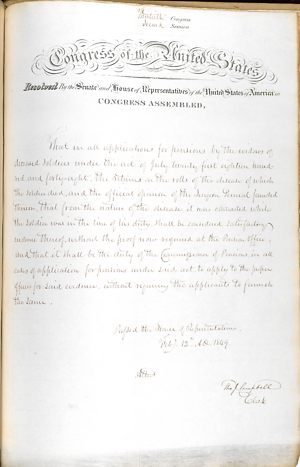 Thirtieth Congress
Second Session
Congress of the United States
Resolved By the Senate and House of Representatives of the United States of America in
CONGRESS ASSEMBLED,
That in all applications for pensions by the widows of
deceased soldiers under the act of July twenty first eighteen hund-
red and forty eight, the returns in the rolls of the disease of which
the soldier died, and the official opinion of the Surgeon General, founded
thereon, that from the nature of the disease it was contracted while
the soldier was in the line of his duty, shall be considered satisfactory
evidence thereof, without the proof now required at the Pension Office,
and that it shall be the duty of the Commissioner of Pensions in all
cases of application for pensions under said act to apply to the proper
offices for said evidence, without requiring the applicants to furnish
the same.
Passed the House of Representatives
Feby. 12th A.D. 1849.
Attest
Tho. J. Campbell
Clerk